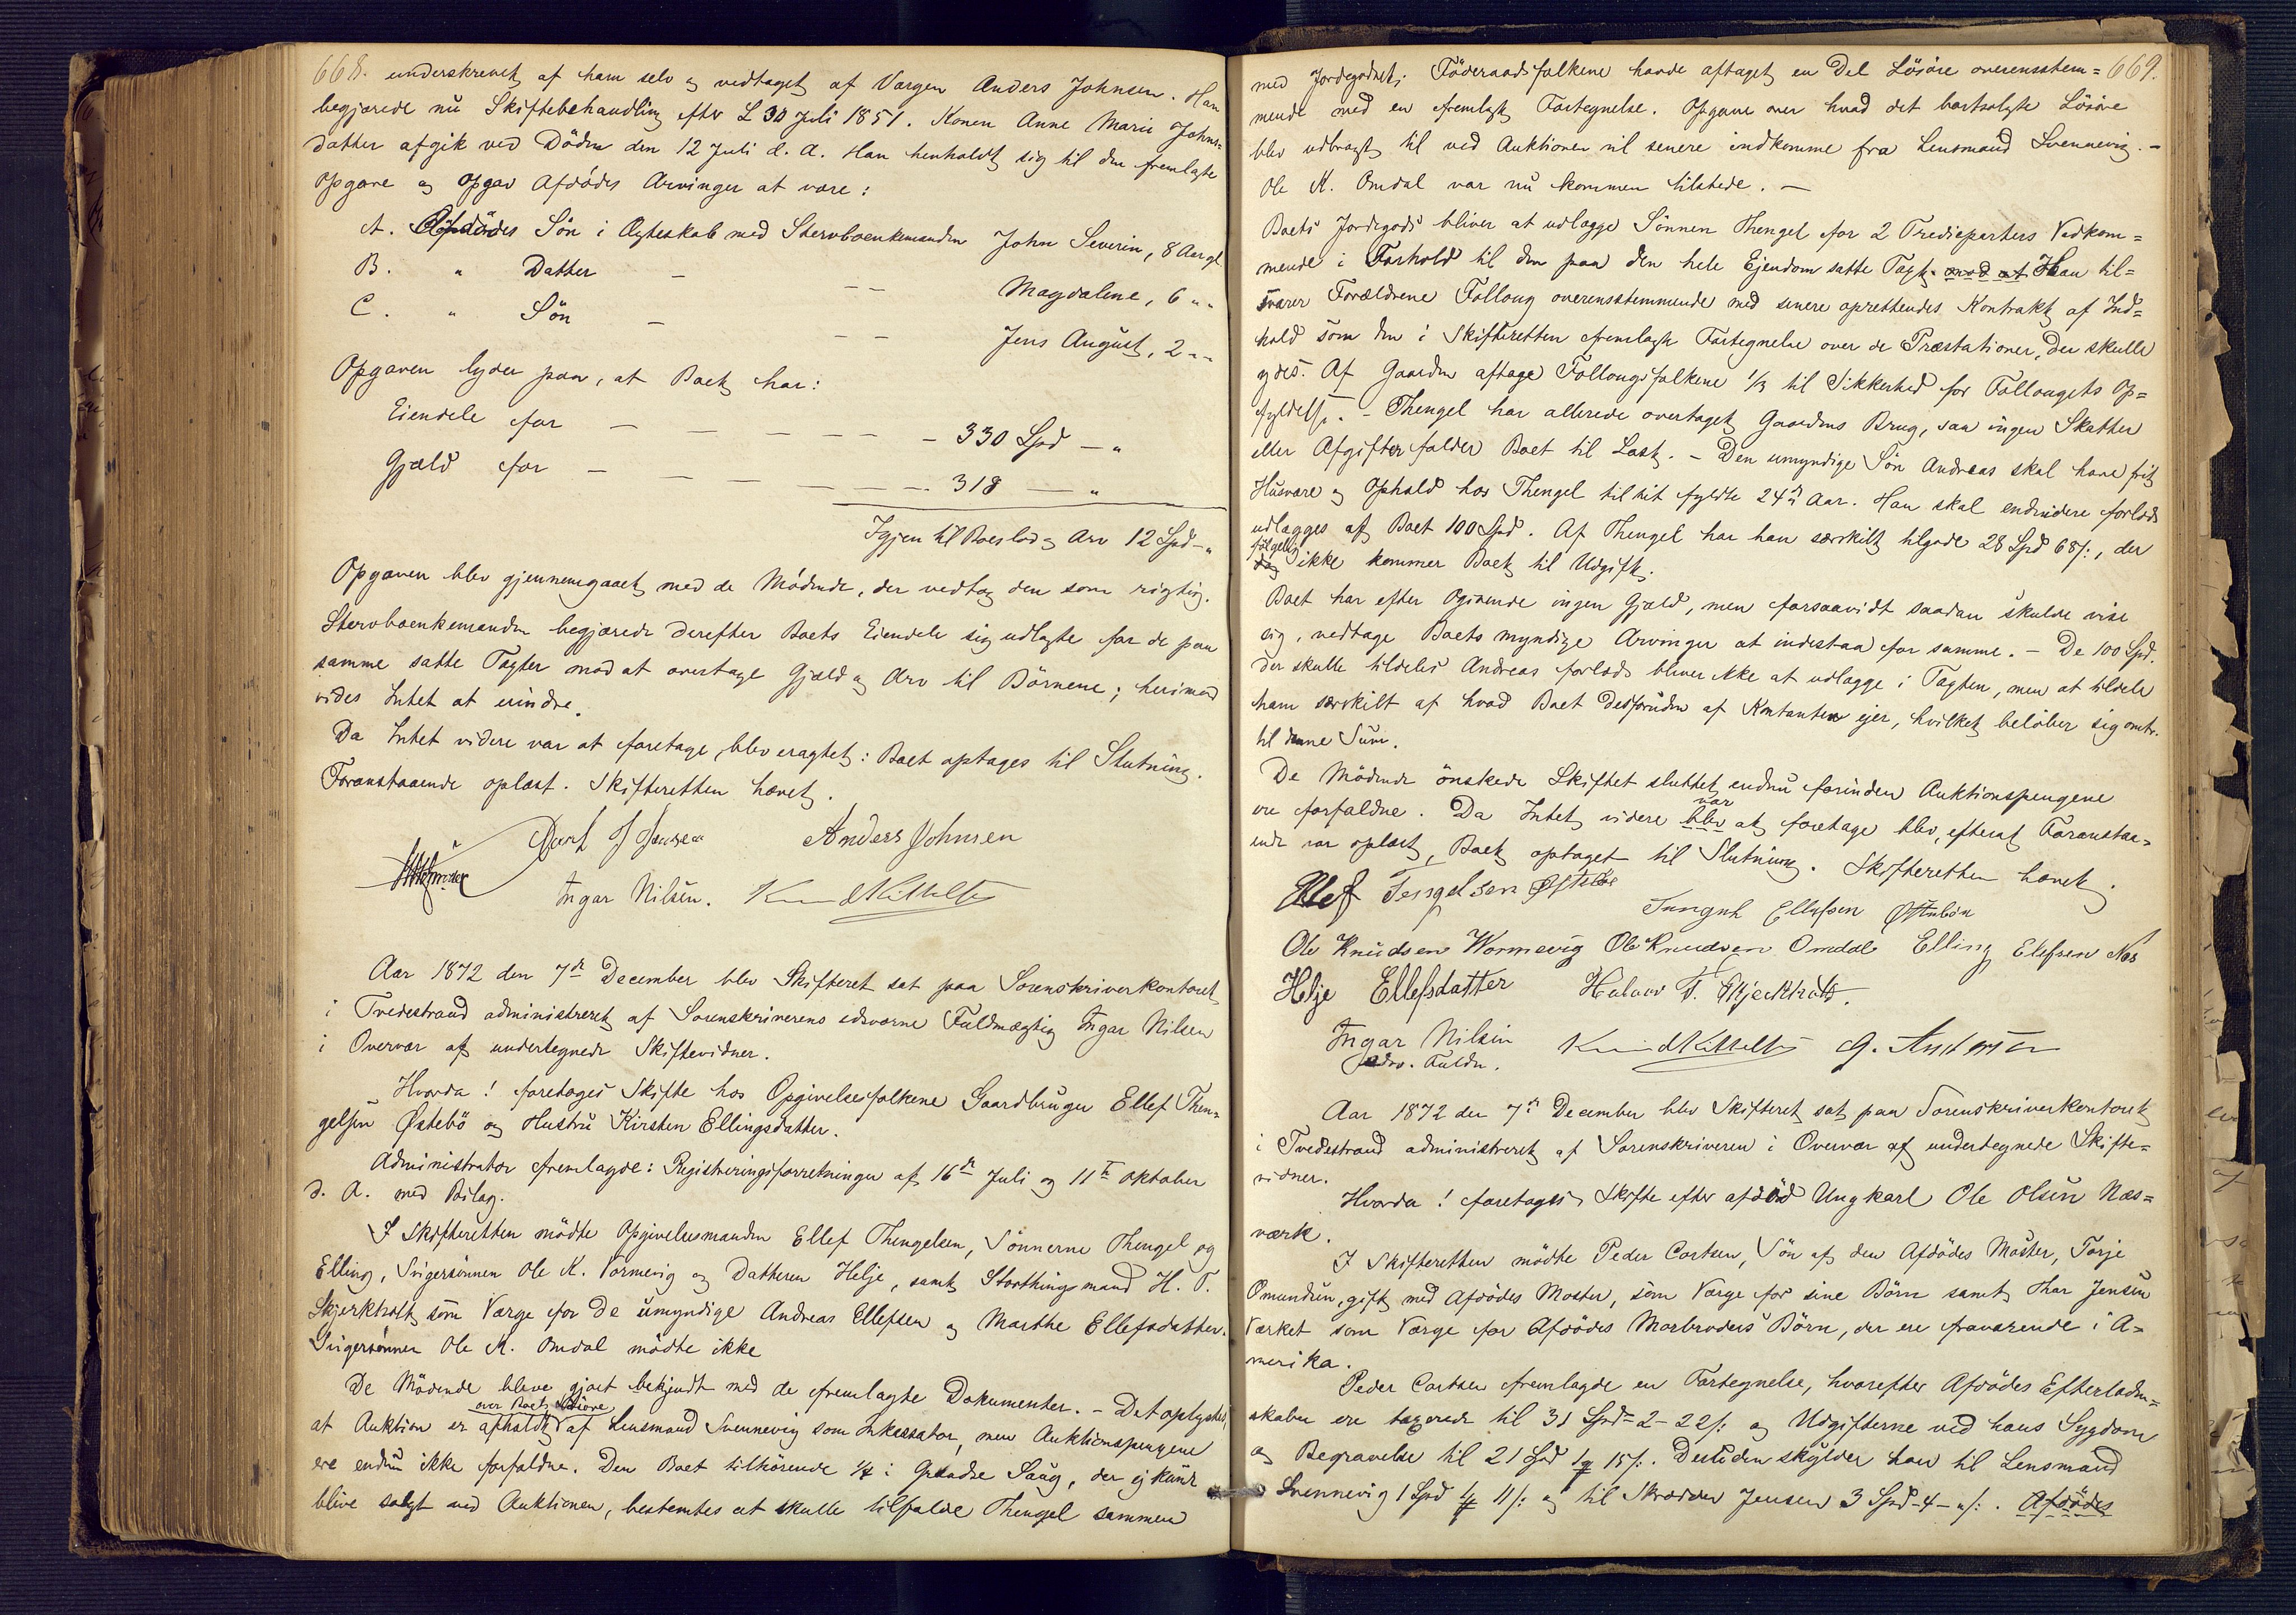 668. underskrevet af ham selv og vedtaget af Værgen Anders Johnsen. Han
begjærede nu Skiftebehandling efter L 30 Juli 1851. Konen Anne Marie Johns=
datter afgik ved Döden den 12 Juli d. A. Han henholdt sig til den fremlagte
Opgave og opgav Afdödes Arvinger at være:
A. Afdödes Sön i Ægteskab med Stervboenkemanden John Severin, 8 Aar gl.
B. " Datter — — — Magdalene, 6 " "
C. " Sön — — — Jens August, 2 " "
Opgaven lyder paa, at Boet har:
Eiendele for — — — — — — 330 Spd — "
Gjæld for — — — — — — 318 — "
Igjen til Boeslod og Arv 12 Spd — "
Opgaven blev gjennemgaaet med de Mödende, der vedtog den som rigtig.
Stervboenkemanden begjærede derefter Boets Eiendele sig udlagte for de paa
samme satte Taxter mod at overtage Gjæld og Arv til Börnene; herimod
vides Intet at erindre.
Da Intet videre var at foretage, blev eragtet: Boet optages til Slutning.
Foranstaaende oplæst. Skifteretten hævet.
Anders Johnsen
Ingar Nilsen. Knud Kittelsen
Aar 1872 den 7de December blev Skifteret sat paa Sorenskriverkontoret
i Tvedestrand administreret af Sorenskriverens edsvorne Fuldmægtig Ingar Nilsen
i Overvær af undertegnede Skiftevidner.
Hvorda! foretoges Skifte hos Opgivelsesfolkene Gaardbruger Ellef Then=
gelsen Østebö og Hustru Kirsten Ellingsdatter.
Administrator fremlagde: Registreringsforretninger af 16de Juli og 11te Oktober
d. A. med Bilag.
I Skifteretten mödte Opgivelsesmanden Ellef Thengelsen, Sönnerne Thengel og
Elling, Svigersönnen Ole K. Vormevig og Datteren Helje, samt Storthingsmand H. T.
Skjerkholt som Værge for de umyndige Andreas Ellefsen og Marthe Ellefsdatter.
Svigersönnen Ole K. Omdal mödte ikke
De Mödende bleve gjort bekjendt med de fremlagte Dokumenter. – Det oplystes,
over Boets Lösöre
at Auktion er afholdt af Lensmand Svennevig som Inkassator, men Auktionspengene
ere endnu ikke forfaldne. Den Boet tilhörende 1/4 i Gaardse Saug, der ej kunde
blive solgt ved Auktionen, bestemtes at skulle tilfalde Thengel sammen
669.
med Jordegodset. Föderaadsfolkene havde aftaget en Del Lösöre overensstem=
mende med en fremlagt Fortegnelse. Opgave over hvad det bortsolgte Lösöre
blev udbragt til ved Auktionen vil senere indkomme fra Lensmand Svennevig. –
Ole K. Omdal var nu kommen tilstede. —
Boets Jordegods bliver at udlægge Sönnen Thengel for 2 Trediepartens Vedkom=
mende i Forhold til den paa den hele Ejendom satte Taxt. mod at Han til=
svarer Forældrene Follaug overensstemmende med senere oprettendes Kontrakt af Ind=
hold som den i Skifteretten fremlagte Fortegnelse over de Præstationer, der skulle
ydes. Af Gaarden aftage Follougsfolkene 1/3 til Sikkerhed for Follougets Op=
fyldelse. – Thengel har allerede overtaget Gaardens Brug, saa ingen Skatter
eller Afgifter falder Boet til Last. – Den umyndige Sön Andreas skal have frit
Husvære og Ophold hos Thengel til sit fyldte 24de Aar. Han skal endvidere forlods
udlægges af Boet 100 Spd. Af Thengel har han særskilt tilgode 28 Spd 68 /:, der
følgelig
ikke kommer Boet til Udgift.
Boet har efter Opgivende ingen Gjæld, men forsaavidt saadan skulde vise
sig, vedtage Boets myndige Arvinger at indestaa for samme. – De 100 Spd.
der skulle tildeles Andreas forlods bliver ikke at udlægge i Taxten, men at tildele
ham særskilt af hvad Boet desforuden af Kontanter ejer, hvilket belöber sig omtr.
til denne Sum.
De Mödende önskede Skiftet sluttet endnu forinden Auktionspengene
var
ere forfaldne. Da Intet videre blev at foretage blev, efterat Foranstaa=
ende var oplæst, Boet optaget til Slutning. Skifteretten hævet.
Ellef Tengelsen Østebø
Tengel Ellefsen Østebön
Ole Knudsen Wormevig Ole Knudsen Omdal Elling Elefsen Næs
Helje Ellefsdatter Halvor T. Skjerkholt.
Ingar Nilsen Knud Kittelsen G. Andersen
edsv. Fuldm.
Aar 1872 den 7de December blev Skifteret sat paa Sorenskriverkontoret
i Tvedestrand administreret af Sorenskriveren i Overvær af undertegnede Skifte=
vidner.
Hvorda! foretoges Skifte efter afdöd Ungkarl Ole Olsen Næs=
værk.
I Skifteretten mödte Peder Carlsen, Sön af den Afdödes Moster, Torje
Omundsen, gift med Afdödes Moster, som Værge for sine Börn samt Thor Jensen
Værket som Værge for Afdödes Morbroders Börn, der ere fraværende i A=
merika.
Peder Carlsen fremlagde en Fortegnelse, hvorefter Afdödes Efterladen=
skaber ere taxerede til 31 Spd - 2 - 22 /: og Udgifterne ved hans Sygdom
og Begravelse til 21 Spd 1 # 15 /:. Desuden skylder han til Lensmand
Svennevig 1 Spd 4 # 11 /: og til Skrædder Jensen 3 Spd - 4 - " /:. Afdödes